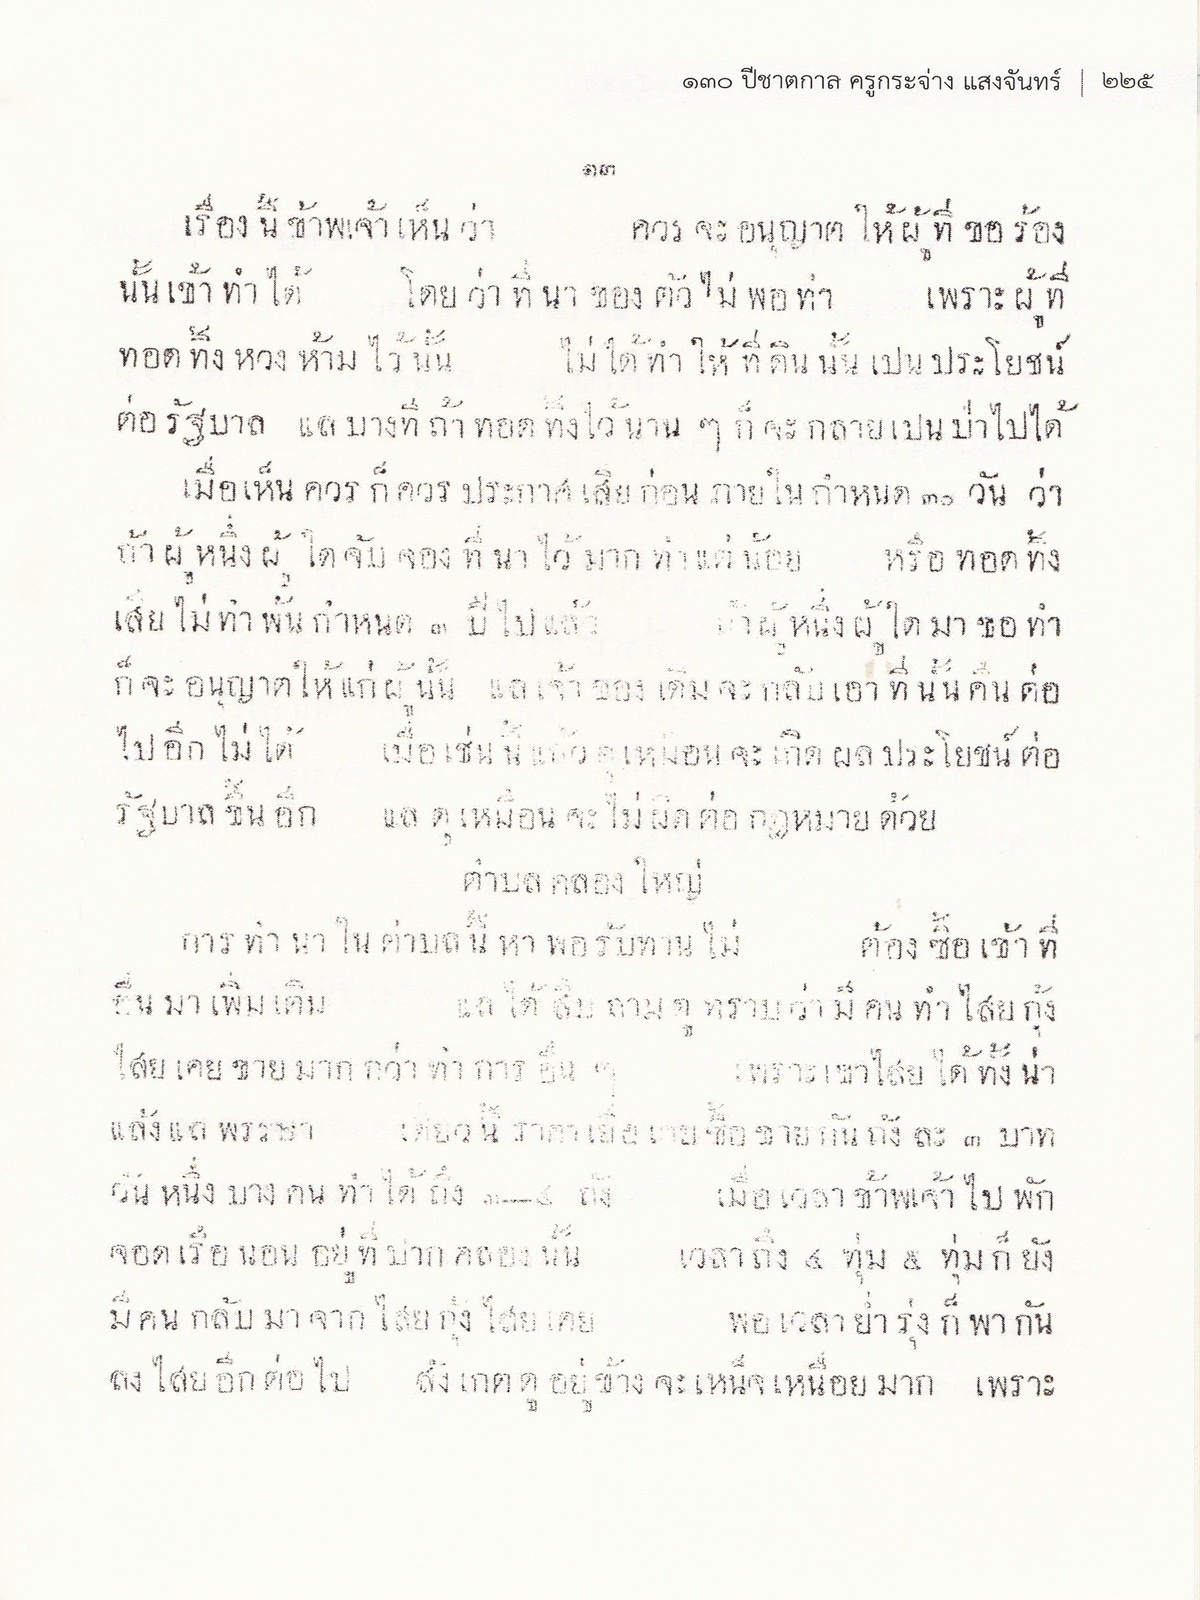 ๑๓๐ ปีชาตกาล ครูกระจ่าง แสงจันทร์ | ๒๒๕
๑๓
เรื่อง นี้ ข้าพเจ้า เห็น ว่า ควร จะ อนุญาต ให้ ผู้ ที่ ขอ ร้อง
นั้น เข้า ทำ ได้ โดย ว่า ที่ นา ของ ตัว ไม่ พอ ทำ เพราะ ผู้ ที่
ทอด ทิ้ง หวง ห้าม ไว้ นั้น ไม่ ได้ ทำ ให้ ที่ ดิน นั้น เปน ประโยชน์
ต่อ รัฐบาล แล บางที ถ้า ทอด ทิ้งไว้ นาน ๆ ก็ จะ กลาย เปน ป่าไปได้
เมื่อ เห็น ควร ก็ ควร ประกาศ เสีย ก่อน ภายใน กำหนด ๓๐ วัน ว่า
ถ้า ผู้ หนึ่ง ผู้ ใด จับ จอง ที่ นา ไว้ มาก ทำ แต่ น้อย หรือ ทอด ทิ้ง
เสีย ไม่ ทำ พ้น กำหนด ๓ ปี ไป แล้ว ถ้า ผู้ หนึ่ง ผู้ ใด มา ขอ ทำ
ก็ จะ อนุญาต ให้ แก่ ผู้ นั้น แล เจ้า ของ เดิม จะ กลับ เอา ที่ นั้น คืน ต่อ
ไป อีก ไม่ ได้ เมื่อ เช่น นี้ แล้ว ดู เหมือน จะ เกิด ผล ประโยชน์ ต่อ
รัฐบาล ขึ้น อีก แล ดู เหมือน จะ ไม่ ผิด ต่อ กฎหมาย ด้วย
ตำบล คลอง ใหญ่
การ ทำ นา ใน ตำบล นี้ หา พอ รับทาน ไม่ ต้อง ซื้อ เข้า ที่
อื่น มา เพิ่ม เติม แล ได้ สืบ ถาม ดู ทราบ ว่า มี คน ทำ ไสย กุ้ง
ไสย เคย ขาย มาก กว่า ทำ การ อื่น ๆ เพราะ เขา ไสย ได้ ทั้ง น่า
แล้ง แล พรรษา เดี๋ยว นี้ ราคา เยื่อ เคย ซื้อ ขาย กัน ถัง ละ ๓ บาท
วัน หนึ่ง บาง คน ทำ ได้ ถึง ๓—๔ ถัง เมื่อ เวลา ข้าพเจ้า ไป พัก
จอด เรือ นอน อยู่ ที่ ปาก คลอง นั้น เวลา ถึง ๔ ทุ่ม ๕ ทุ่ม ก็ ยัง
มี คน กลับ มา จาก ไสย กุ้ง ไสย เคย พอ เวลา ย่ำ รุ่ง ก็ พา กัน
ลง ไสย อีก ต่อ ไป สัง เกต ดู อยู่ ข้าง จะ เหน็จ เหนื่อย มาก เพราะ